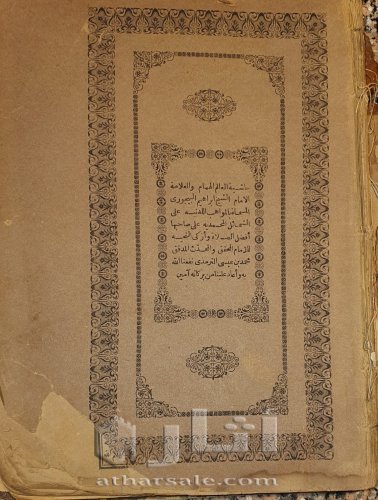 حاشية العالم الهمام والعلامة
الامام الشيخ ابراهيم البيجورى
المسماة بالمواهب اللدنيه على
الشمائل المحمديه على صاحبها
أفضل الصلاة وأزكى التحيه
للامام المحقق والمحدث المدقق
محمد بن عيسى الترمذى نفعنا الله
به وأعاد علينا من بركاته آمين
اثار
atharsale.com